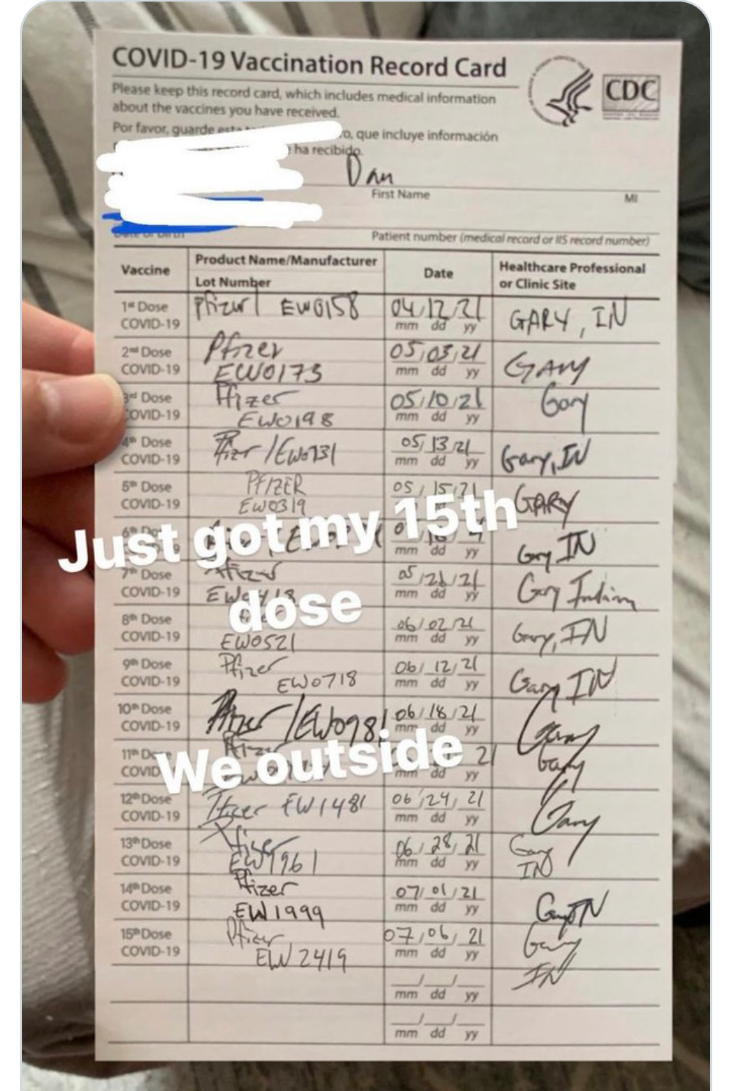 COVID-19 Vaccination Record Card
Please keep this record card, which includes medical information
about the vaccines you have received.
Por favor, guarde esta que incluye información
ha recibido.
CDC
Dan
First Name MI
Date of birth Patient number (medical record or IIS record number)
Vaccine Product Name/Manufacturer Date Healthcare Professional
Lot Number or Clinic Site
1st Dose Pfizer EW0158 04/12/21 GARY, IN
COVID-19 mm dd yy
2nd Dose Pfizer 05/03/21 GARY
COVID-19 EW0173 mm dd yy
3rd Dose Pfizer 05/10/21 Gary
COVID-19 EW0198 mm dd yy
4th Dose Pfizer/EW0731 05/13/21 Gary, IN
COVID-19 mm dd yy
5th Dose PFIZER 05/15/21 GARY
COVID-19 EW0319 mm dd yy
Just got my 15th
mm dd yy Gary IN
7th Dose Pfizer 05/21/21 Gary Indiana
COVID-19 mm dd yy
dose
8th Dose 06/02/21 Gary, IN
COVID-19 EW0521 mm dd yy
9th Dose Pfizer 06/12/21 Gary IN
COVID-19 EW0718 mm dd yy
10th Dose Pfizer/EW0981 06/18/21 Gary
COVID-19 mm dd yy
11th Dose Pfizer 21 Gary
COVID mm dd yy
We outside
12th Dose Pfizer EW1481 06/24/21 Gary
COVID-19 mm dd yy
13th Dose Pfizer 06/28/21 Gary
COVID-19 EW1961 mm dd yy IN
14th Dose Pfizer 07/01/21 Gary IN
COVID-19 EW1999 mm dd yy
15th Dose Pfizer 07/06/21 Gary
COVID-19 EW2419 mm dd yy IN
mm dd yy
mm dd yy